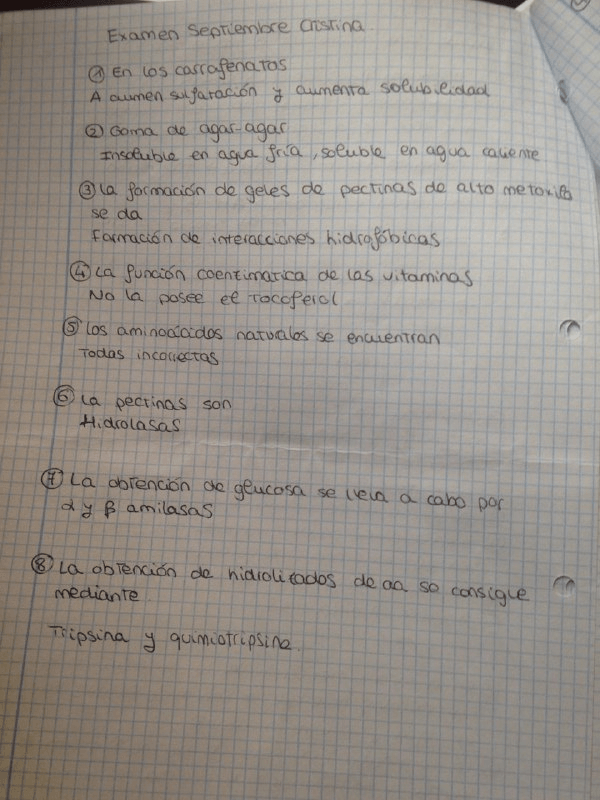 Examen Septiembre Cristina.
① En los carrafenatos
A aumen sulfatación y aumenta solubilidad
② Goma de agar-agar
Insoluble en agua fría, soluble en agua caliente
③ La formación de geles de pectinas de alto metoxilo
se da
Formación de interacciones hidrofóbicas
④ La función coentimatica de las vitaminas
No la posee el tocoferol
⑤ Los aminoácidos naturales se encuentran
Todas incorrectas
⑥ La pectinas son
Hidrolasas
⑦ La obtención de glucosa se lleva a cabo por
α y β amilasas
⑧ La obtención de hidrolitados de aa se consigue
mediante.
Tripsina y quimiotripsina.